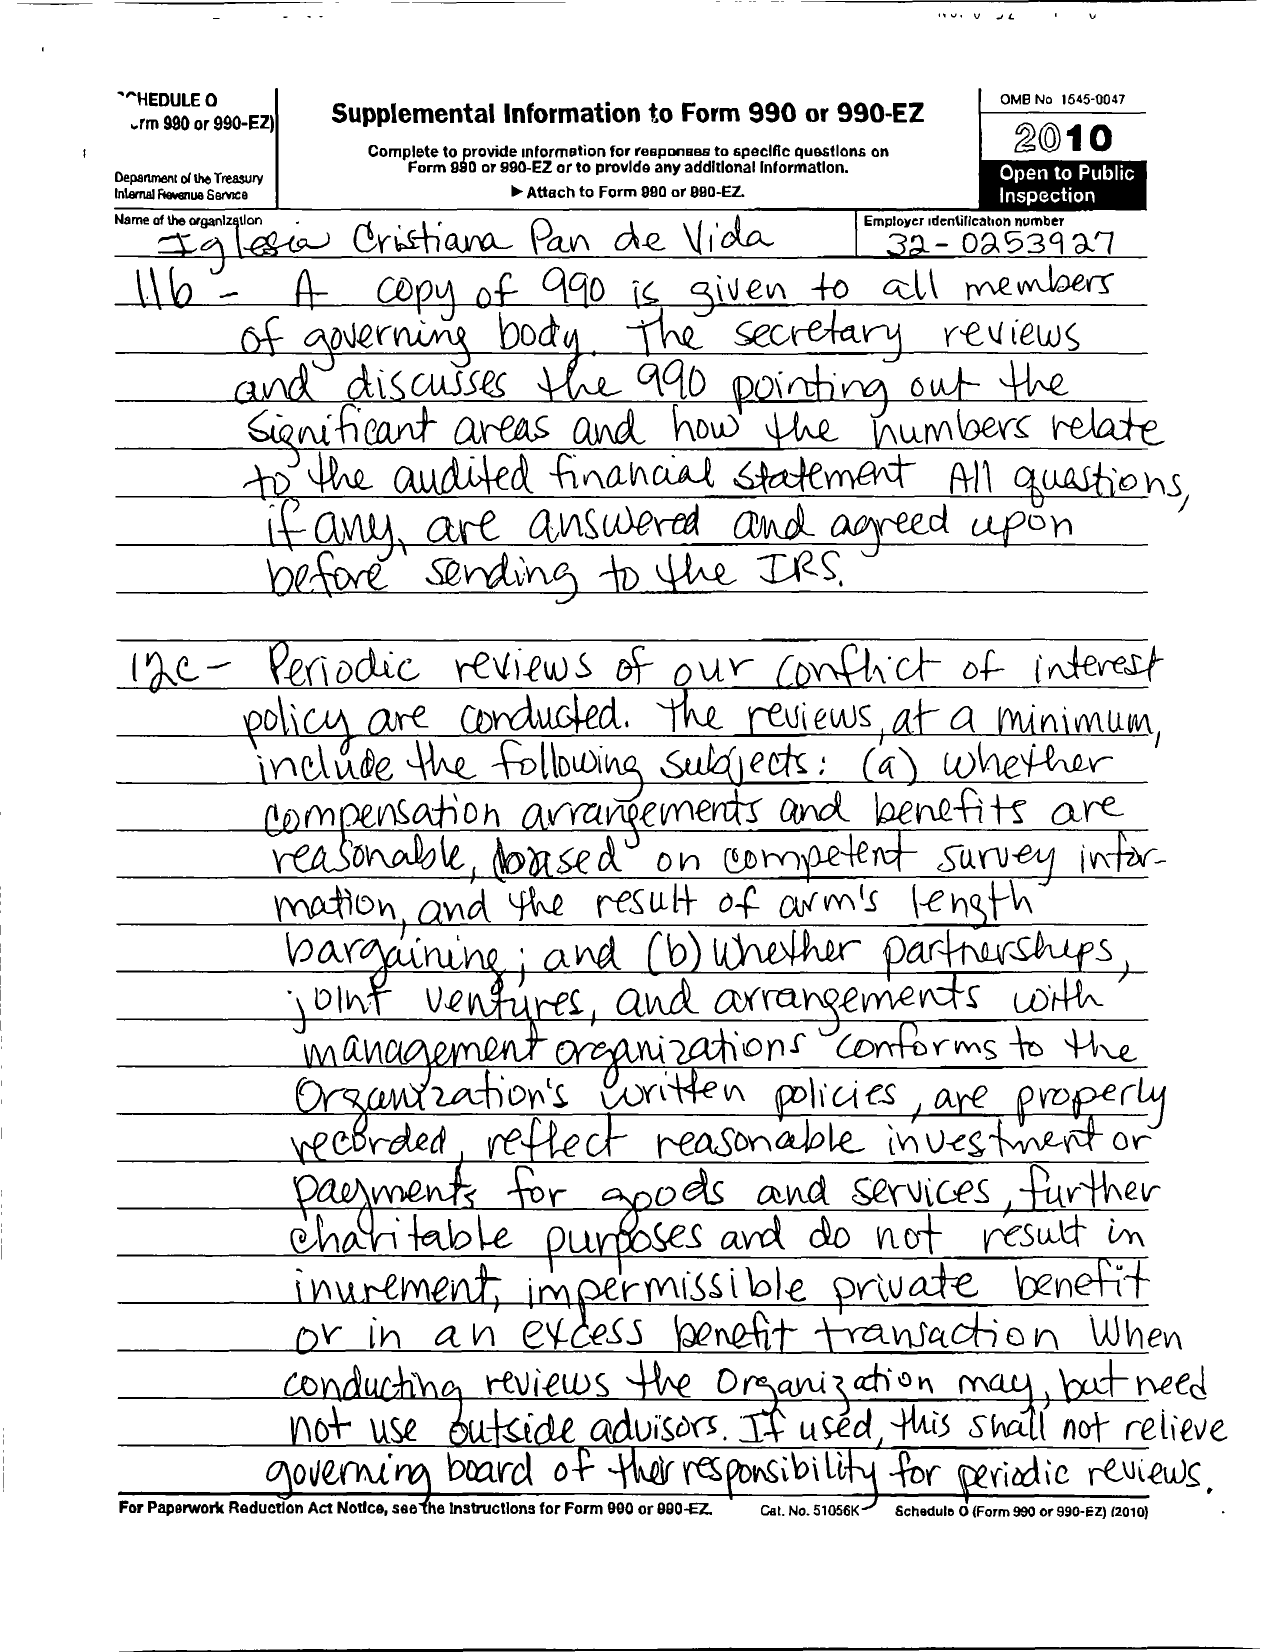 HEDULE O
rm 990 or 990-EZ)
Department of the Treasury
Internal Revenue Service
Supplemental Information to Form 990 or 990-EZ
Complete to provide information for responses to specific questions on
Form 990 or 990-EZ or to provide any additional information.
▶ Attach to Form 990 or 990-EZ.
OMB No 1545-0047
2010
Open to Public
Inspection
Name of the organization
Iglesia Cristiana Pan de Vida
Employer identification number
32-0253927
11b - A copy of 990 is given to all members
of governing body. The secretary reviews
and discusses the 990 pointing out the
significant areas and how the numbers relate
to the audited financial statement All questions,
if any, are answered and agreed upon
before sending to the IRS.
12c - Periodic reviews of our conflict of interest
policy are conducted. The reviews, at a minimum,
include the following subjects: (a) whether
compensation arrangements and benefits are
reasonable, based on competent survey infor-
mation, and the result of arm's length
bargaining; and (b) whether partnerships,
joint ventures, and arrangements with
management organizations conforms to the
Organization's written policies, are properly
recorded, reflect reasonable investment or
payments for goods and services, further
charitable purposes and do not result in
inurement, impermissible private benefit
or in an excess benefit transaction When
conducting reviews the Organization may, but need
not use outside advisors. If used, this shall not relieve
governing board of their responsibility for periodic reviews.
For Paperwork Reduction Act Notice, see the Instructions for Form 990 or 990-EZ. Cat. No. 51056K Schedule O (Form 990 or 990-EZ) (2010)